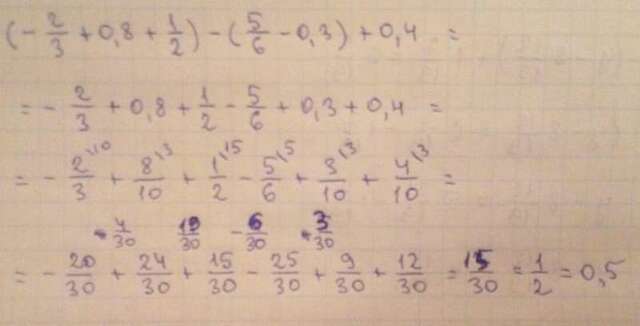 (- 2/3 + 0,8 + 1/2) - (5/6 - 0,3) + 0,4 =
= - 2/3 + 0,8 + 1/2 - 5/6 + 0,3 + 0,4 =
= - 2\10/3 + 8\3/10 + 1\15/2 - 5\5/6 + 3\3/10 + 4\3/10 =
- 4/30 19/30 - 6/30 - 3/30
= - 20/30 + 24/30 + 15/30 - 25/30 + 9/30 + 12/30 = 15/30 = 1/2 = 0,5